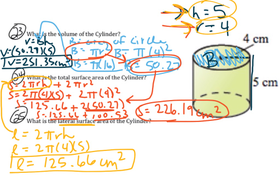 h = 5
r = 4
23 What is the volume of the Cylinder?
V = Bh
B = area of Circle
V = (50.27)(5)
B = πr²
B = π(4)²
V = 251.35 cm³
B = π(16)
B = 50.27
B
4 cm
5 cm
24 What is the total surface area of the Cylinder?
2πrh + 2πr²
S = 2π(4)(5) + 2π(4)²
S = 125.66 + 2(50.27)
S = 125.66 + 100.53
S = 226.19 cm²
25 What is the lateral surface area of the Cylinder?
l = 2πrh
l = 2π(4)(5)
l = 125.66 cm²